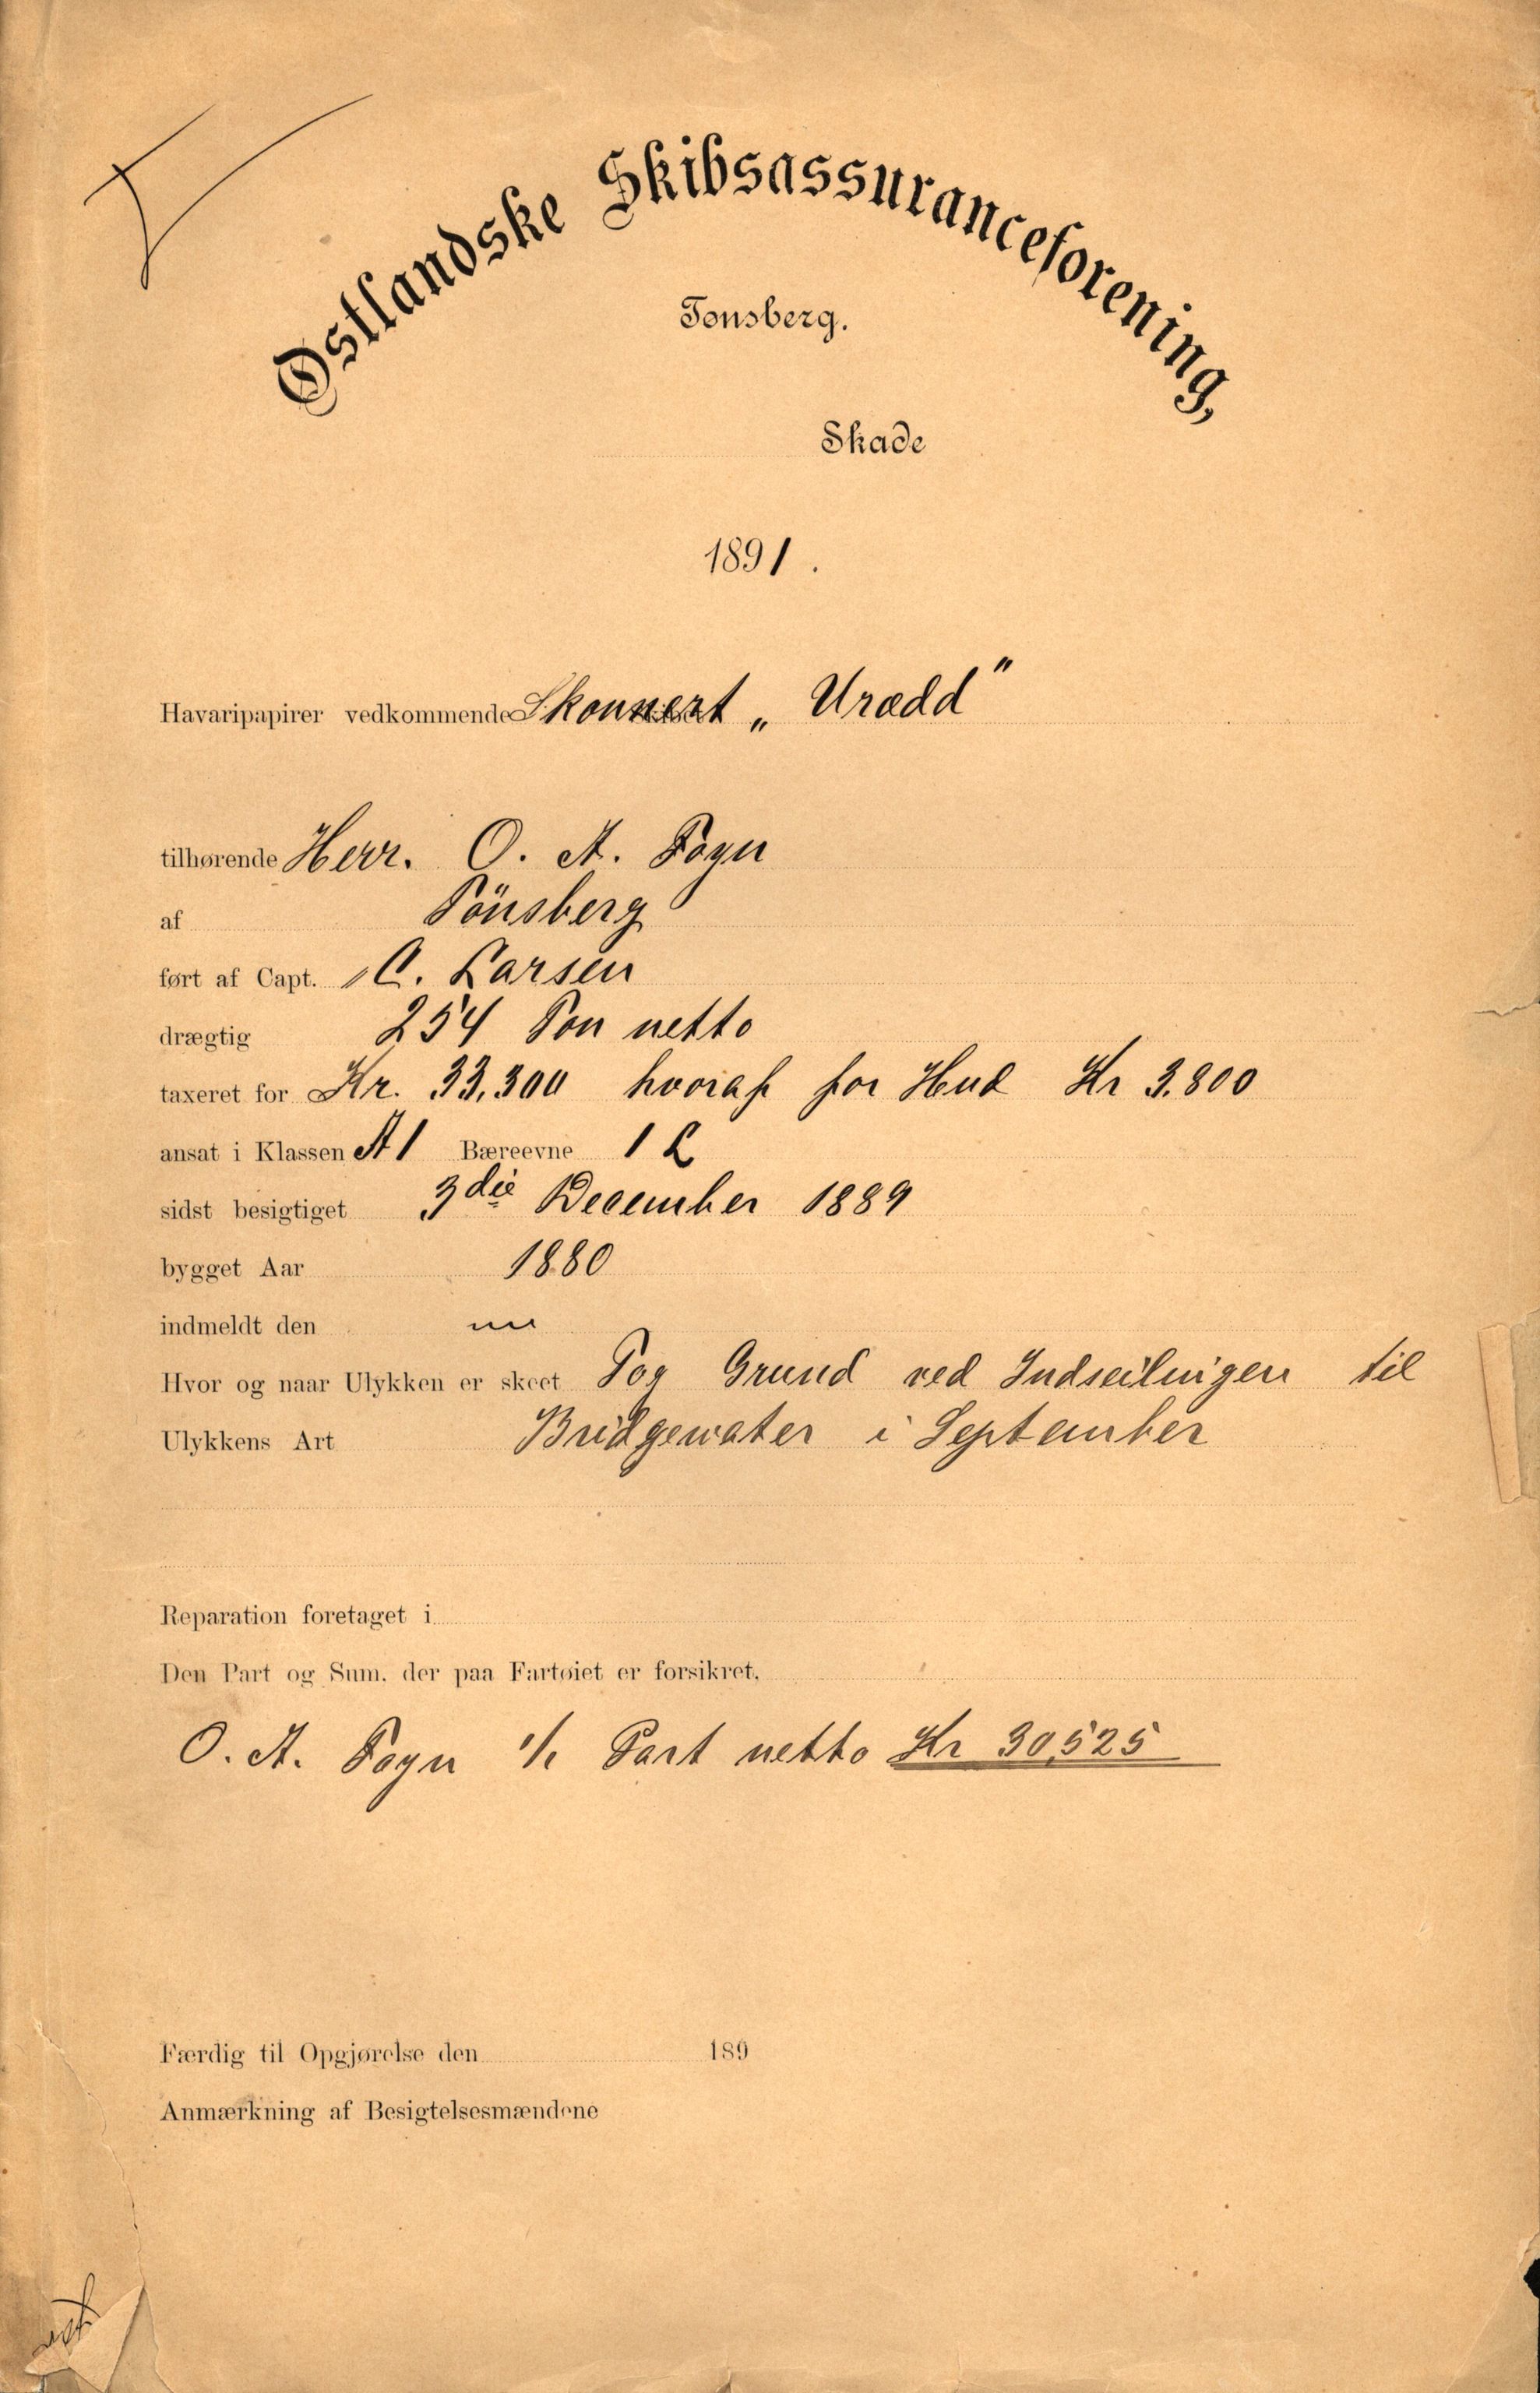 Østlandske Skibsassuranceforening,
Tønsberg.
Skade
1891.
Havaripapirer vedkommende Skonnert „Urædd"
tilhørende Herr. O. A. Fogn
af Tönsberg
ført af Capt. C. Larsen
drægtig 254 Ton netto
taxeret for Kr. 33,300 hvoraf for Hud Kr 3.800
ansat i Klassen A1 Bæreevne 1 L
sidst besigtiget 3die December 1889
bygget Aar 1880
indmeldt den
Hvor og naar Ulykken er skeet Tog Grund ved Indseilingen til
Ulykkens Art Bridgewater i September
Reparation foretaget i
Den Part og Sum, der paa Fartøiet er forsikret,
O. A. Fogn 1/1 Part netto Kr 30,525
Færdig til Opgjørelse den 189
Anmærkning af Besigtelsesmændene